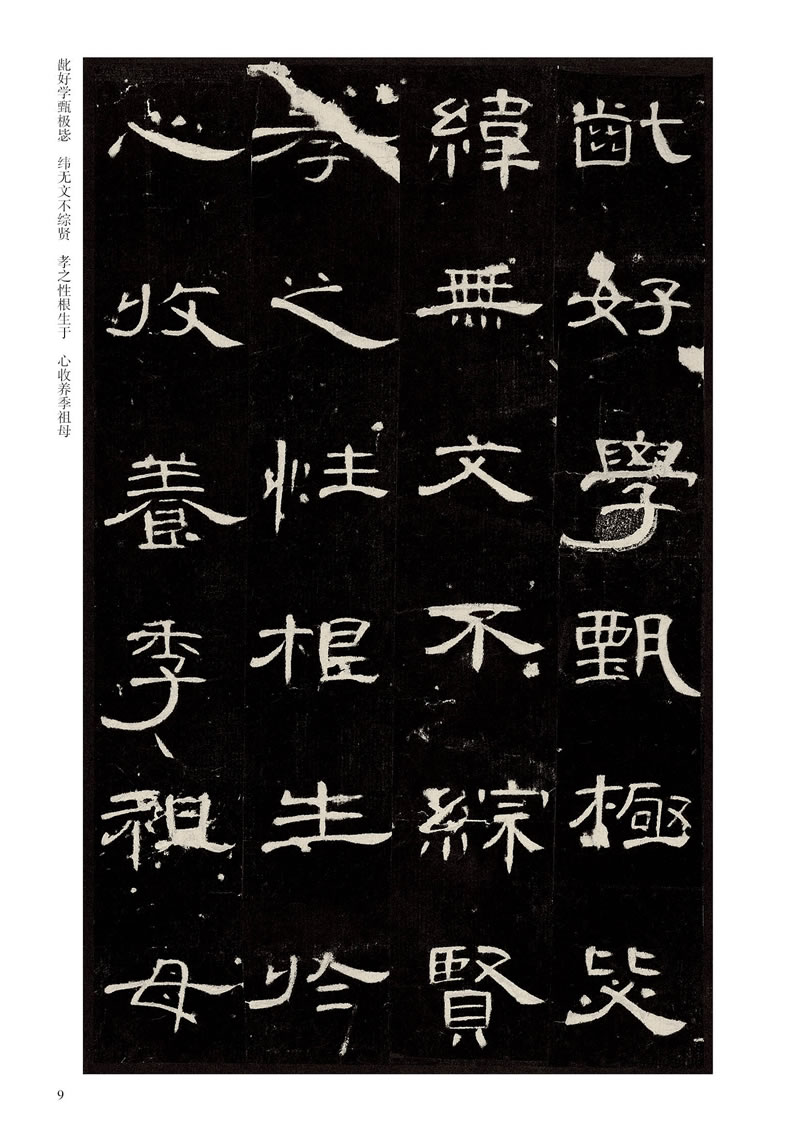 齔好學甄極毖
緯無文不綜賢
孝之性根生於
心收養季祖母
龀好学甄极毖　纬无文不综贤　孝之性根生于　心收养季祖母
9